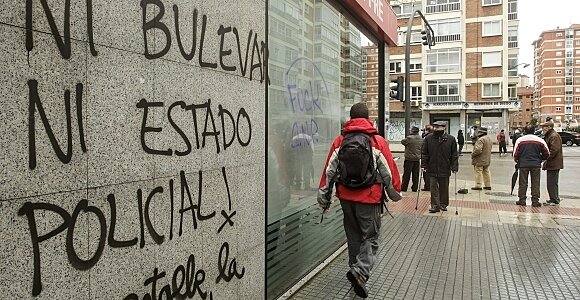 NI BULEVAR
NI ESTADO
POLICIAL!
estalle la
FUCK